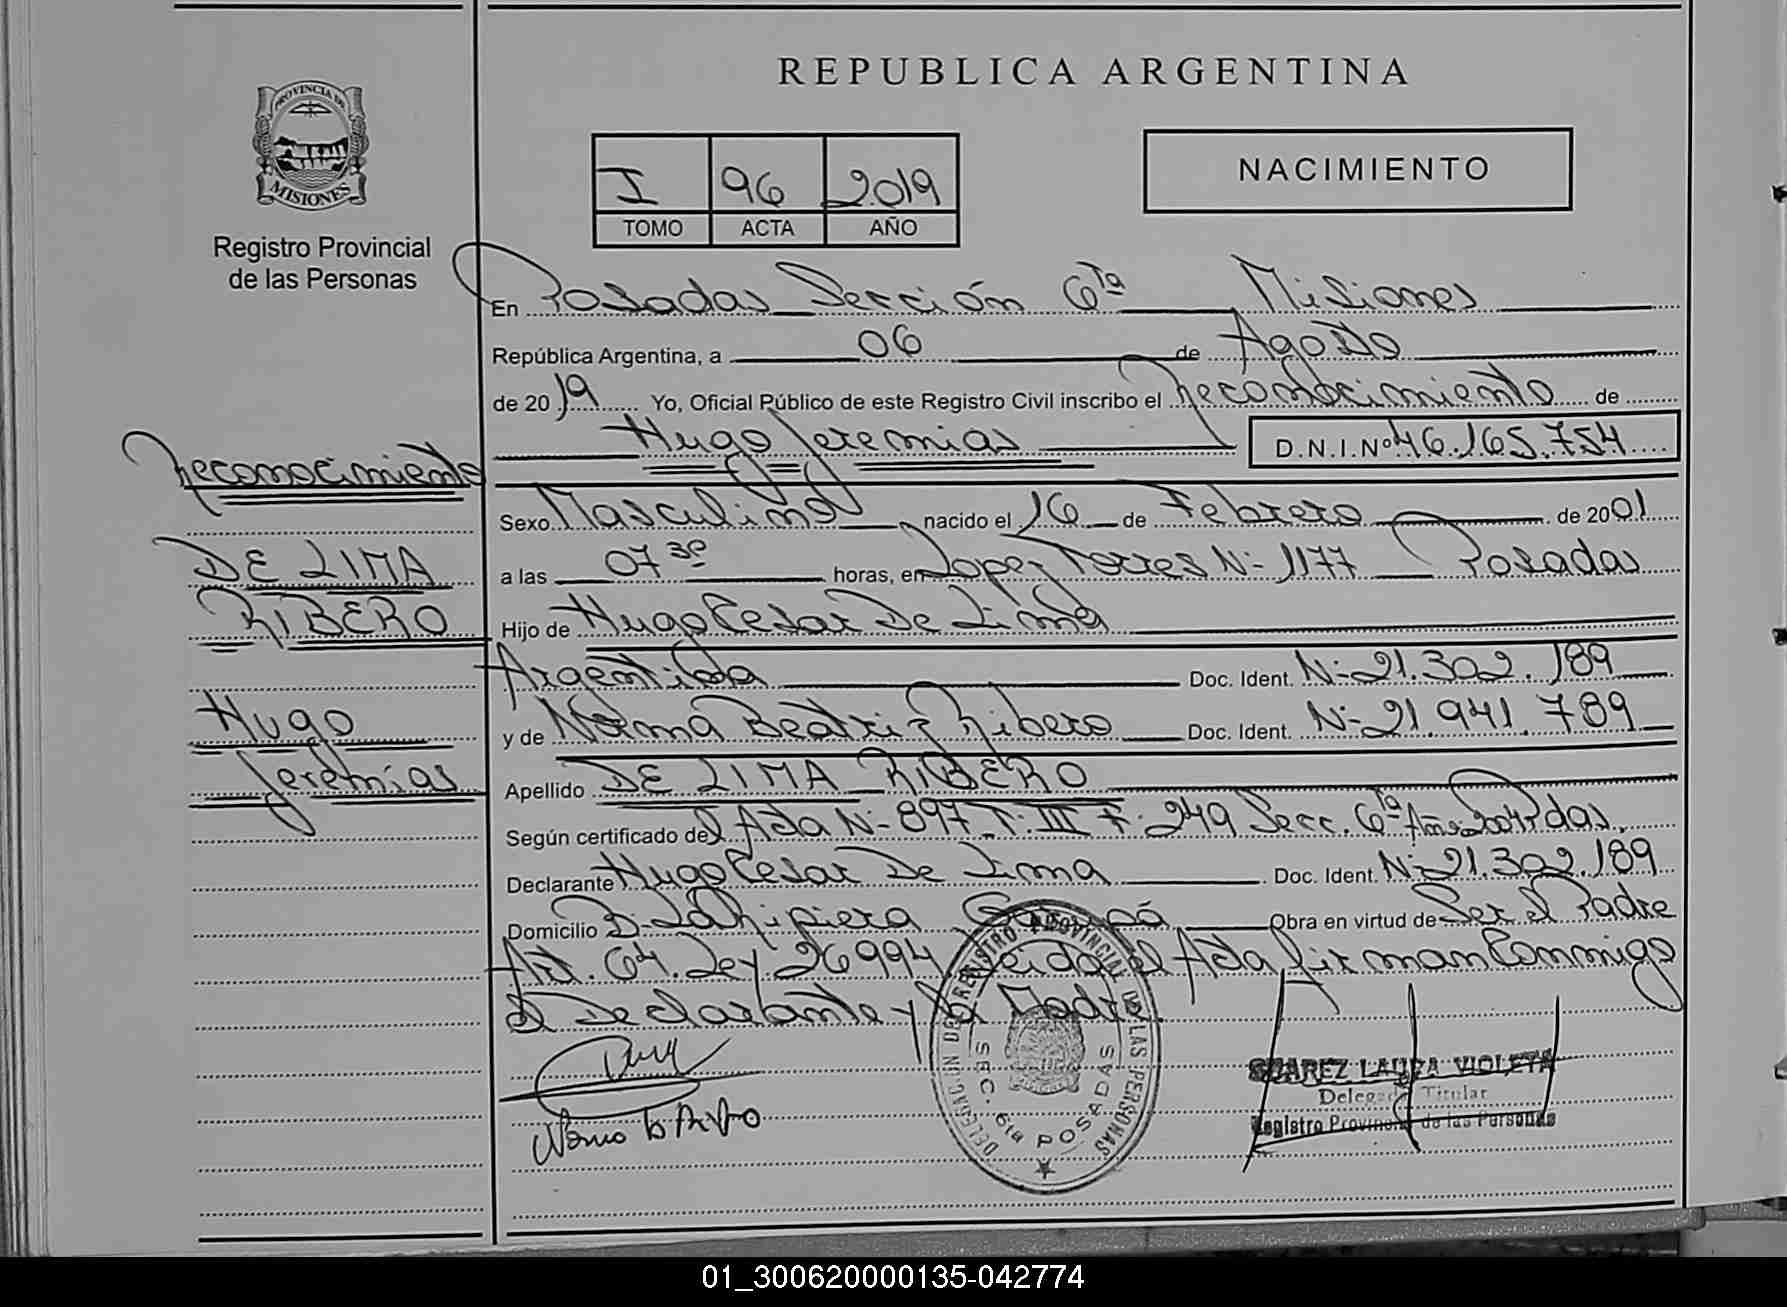 REPUBLICA ARGENTINA
PROVINCIA DE
MISIONES
Registro Provincial
de las Personas
I 96 2019
TOMO ACTA AÑO
NACIMIENTO
En Posadas Sección 6ta Misiones
República Argentina, a 06 de Agosto
de 2019 Yo, Oficial Público de este Registro Civil inscribo el Reconocimiento de
Hugo Jeremias D.N.I.Nº 46.165.754
Reconocimiento
DE LIMA
RIBERO
Hugo
Jeremías
Sexo Masculino nacido el 16 de Febrero de 2001
a las 07 30 horas, en Lopez Torres N- 1177 Posadas
Hijo de Hugo Cesar De Lima
Argentida Doc. Ident. N-21.302.189
y de Norma Beatriz Ribero Doc. Ident. N-21.941.789
Apellido DE LIMA RIBERO
Según certificado del Acta N- 897 T. III F. 249 Secc. 6ta Año Pdas.
Declarante Hugo Cesar De Lima Doc. Ident. N-21.302.189
Domicilio Obra en virtud de Ser el Padre
Art. 64. Ley 26994 Leida el Acta firman Conmigo
el Declarante y la Madre.
DELEGACION DEL REGISTRO PROVINCIAL DE LAS PERSONAS
SEC. 6ta POSADAS
SUAREZ LAURA VIOLETA
Delegada Titular
Registro Provincial de las Personas
01_300620000135-042774